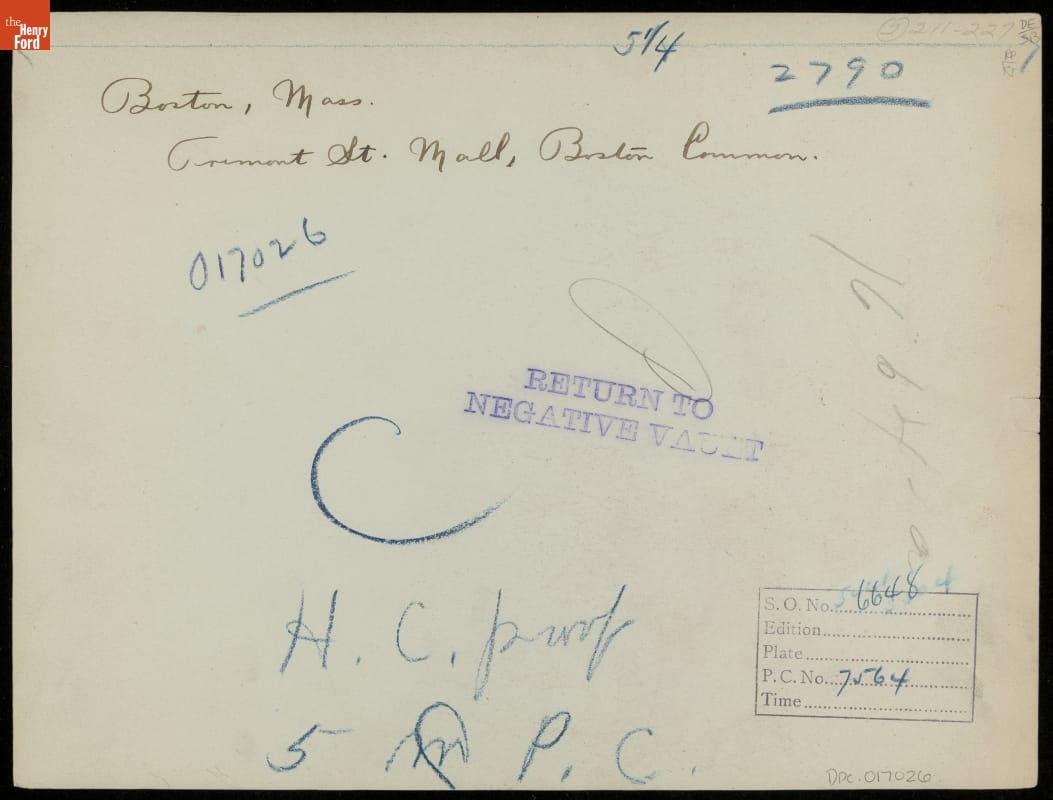 the
Henry
Ford
5 1/4
2790
Boston, Mass.
Tremont St. Mall, Boston Common.
017026
RETURN TO
NEGATIVE VAULT
C
H. C. proof
5 P. C.
S. O. No. 6648
Edition
Plate
P. C. No. 7564
Time
DPC.017026